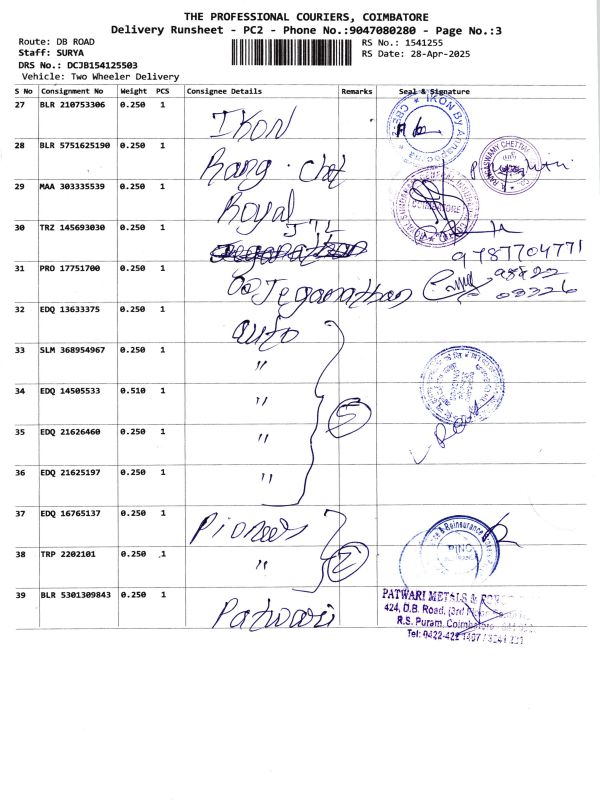 THE PROFESSIONAL COURIERS, COIMBATORE
Delivery Runsheet - PC2 - Phone No.:9047080280 - Page No.:3
Route: DB ROAD
Staff: SURYA
DRS No.: DCJB154125503
Vehicle: Two Wheeler Delivery
RS No.: 1541255
RS Date: 28-Apr-2025
S No Consignment No Weight PCS Consignee Details Remarks Seal & Signature
27 BLR 210753306 0.250 1 IKON
IKON By Annapoorna
28 BLR 5751625190 0.250 1 Rang. chet
29 MAA 303335539 0.250 1 Royal
COIMBATORE
30 TRZ 145693030 0.250 1 JTL
9787704771
31 PRO 17751700 0.250 1 Jeganathan
98422
03326
32 EDQ 13633375 0.250 1 auto
33 SLM 368954967 0.250 1 "
34 EDQ 14505533 0.510 1 "
5
35 EDQ 21626460 0.250 1 "
36 EDQ 21625197 0.250 1 "
37 EDQ 16765137 0.250 1 Pioneer
& Reinsurance
38 TRP 2202101 0.250 1 "
2
39 BLR 5301309843 0.250 1 Patwari
PATWARI METALS &
424, D.B. Road, (3rd Floor
R.S. Puram, Coimbatore
Tel: 0422-422 1407 /